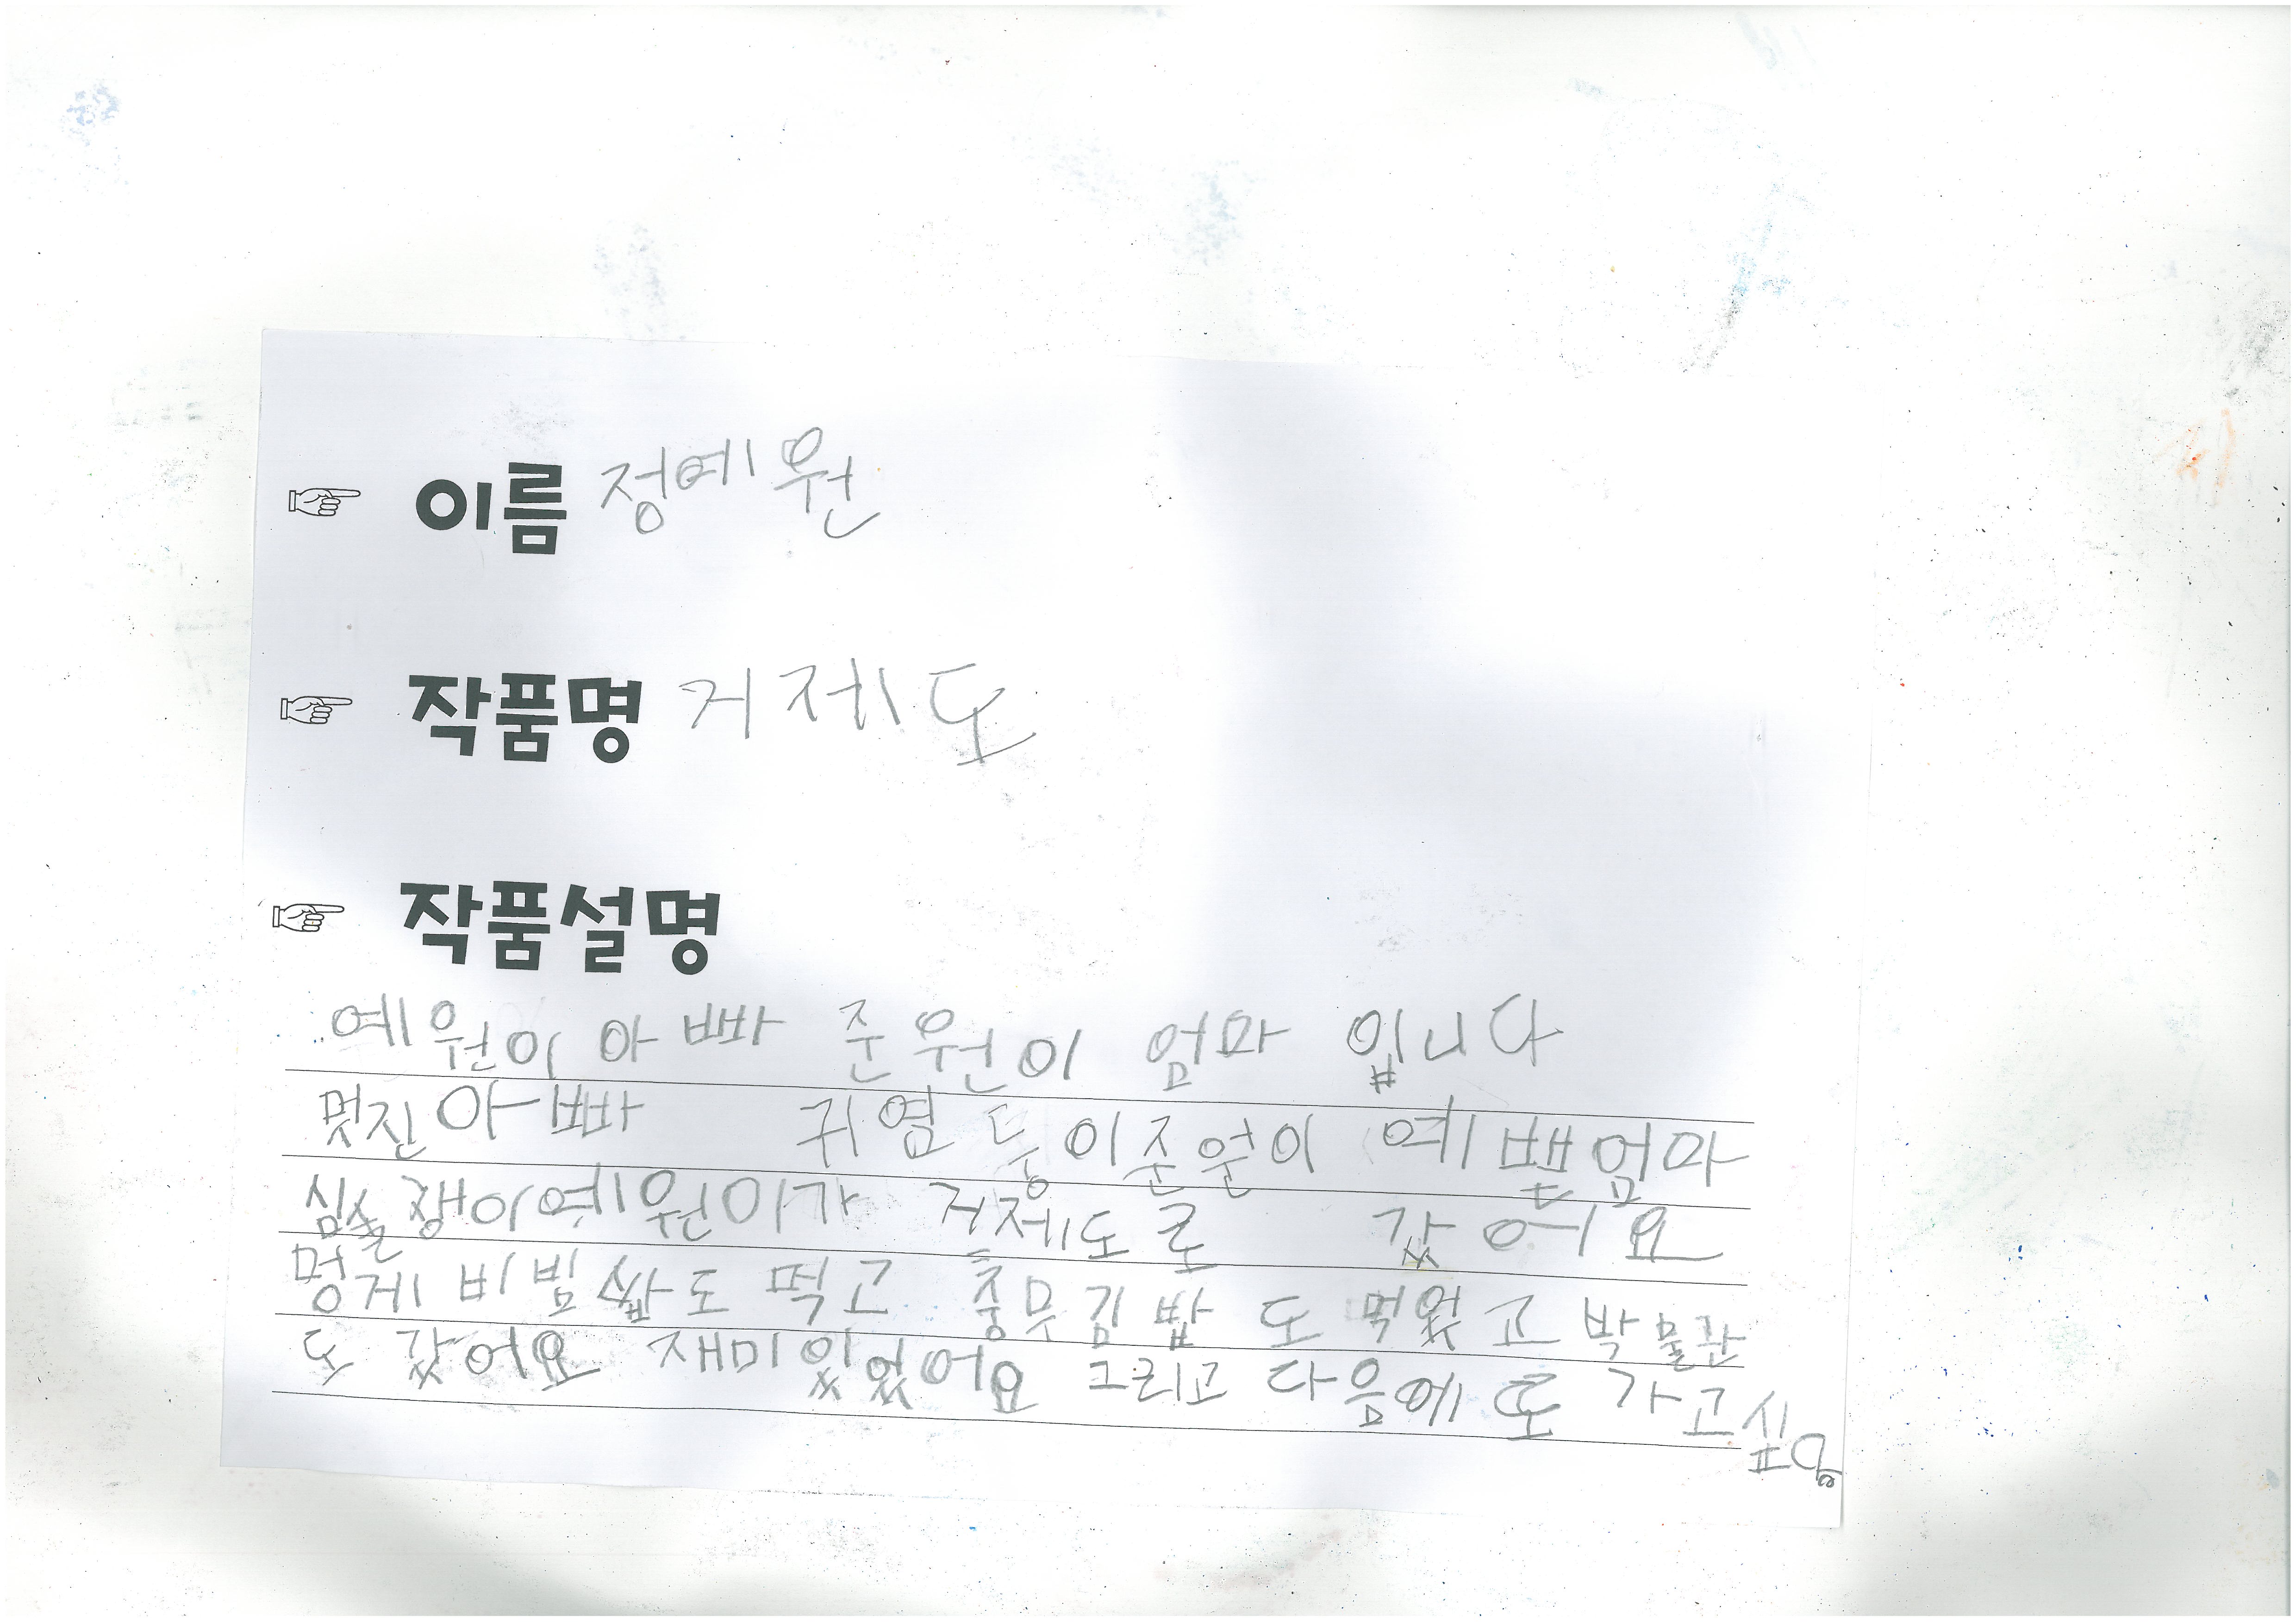 ☞ 이름 정예원
☞ 작품명 거제도
☞ 작품설명
예원이 아빠 준원이 엄마 입니다
멋진아빠 귀염둥이준원이 예쁜엄마
심술쟁이예원이가 거제도로 갔어요
멍게비빔밥도 먹고 충무김밥도 먹었고 박물관
도 갔어요 재미있었어요 그리고 다음에 또 가고